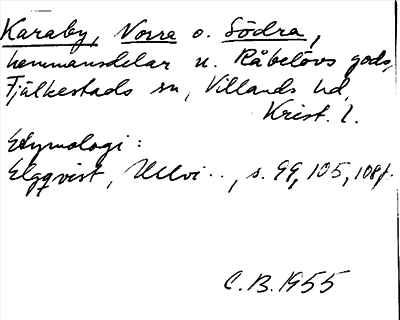 Karaby, Norra o. Södra,
hemmansdelar u. Råbelövs gods,
Fjälkestads sn, Villands hd,
Krist. l.
Etymologi:
Elgqvist, Ullvi.., s. 99, 105, 108f.
C.B. 1955